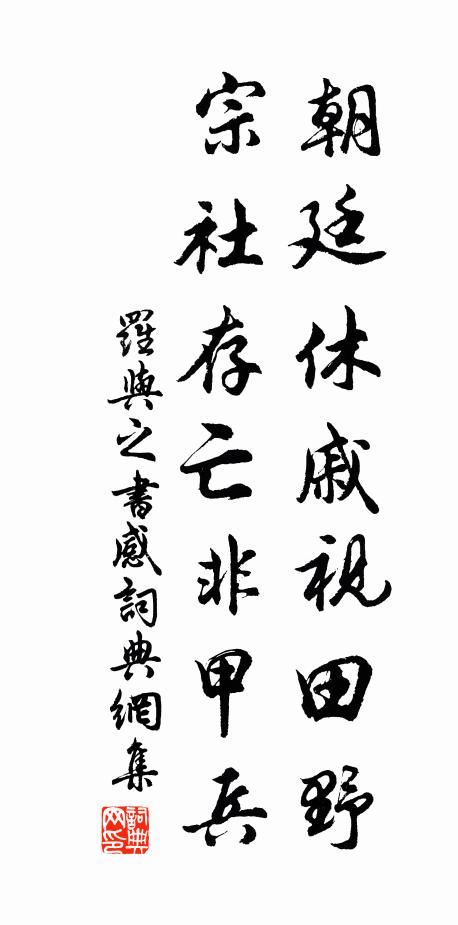 朝廷休戚視田野
宗社存亡非甲兵
羅與之書感詞典網集
詞典網印